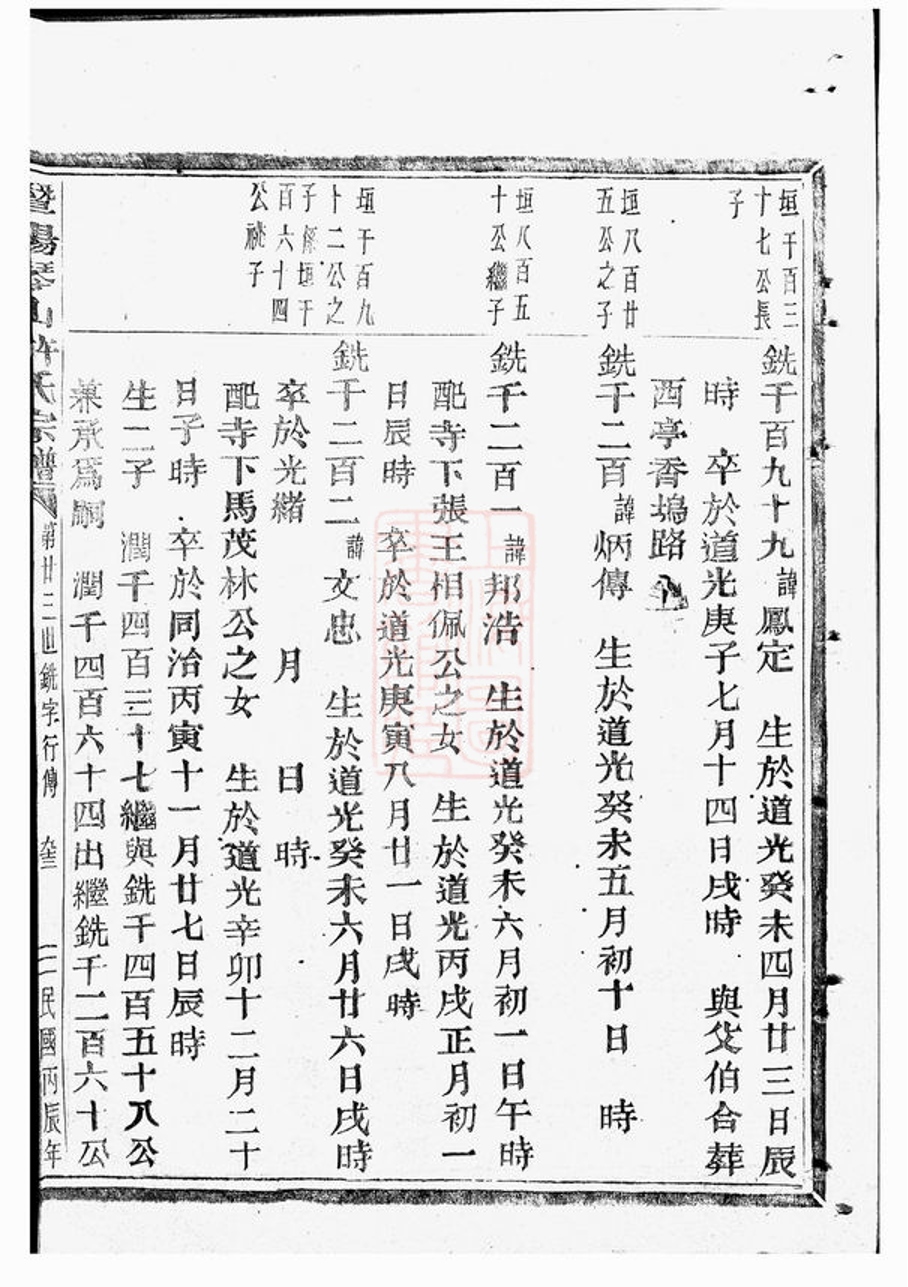 垣千百三
十七公長
子
銑千百九十九諱鳳定　生於道光癸未四月廿三日辰
時　卒於道光庚子七月十四日戌時　與父伯合葬
西亭香塢路
垣八百廿
五公之子
銑千二百諱炳傳　生於道光癸未五月初十日　時
垣八百五
十公繼子
銑千二百一諱邦浩　生於道光癸未六月初一日午時
配寺下張王相佩公之女　生於道光丙戌正月初一
日辰時　卒於道光庚寅八月廿一日戌時
垣千百九
十二公之
子係垣千
百六十四
公祧子
銑千二百二諱文忠　生於道光癸未六月廿六日戌時
卒於光緒　　月　　日　時
配寺下馬茂林公之女　生於道光辛卯十二月二十
日子時　卒於同治丙寅十一月廿七日辰時
生二子　潤千四百三十七繼與銑千四百五十八公
兼承爲嗣　潤千四百六十四出繼銑千二百六十公
暨陽琴山許氏宗譜　第廿三世銑字行傳　民國丙辰年